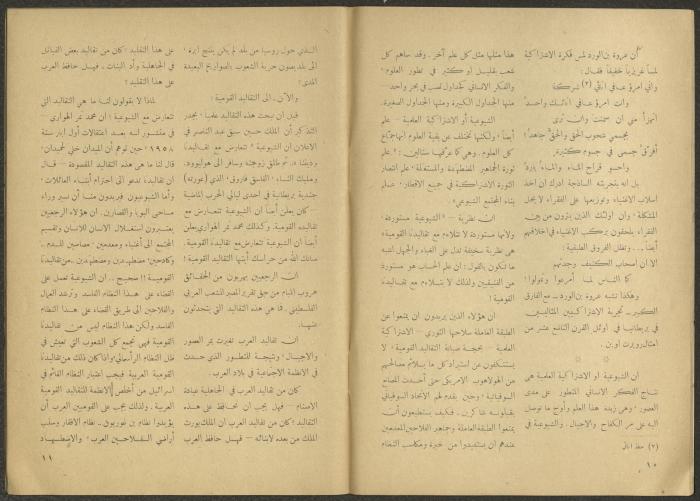 أن عروة بن الورد لمس فكرة الاشتراكية
لمساً غريزياً خفيفاً فقال :
واني امرؤ عافى انائي (٢) شركة
وانت امرؤ عافى انائك واحد
أتهزأ مني ان سمنت وان ترى
بجسمي شحوب الحق والحق جاهد
أفرق جسمي في جسوم كثيرة
واحسو قراح الماء والماء بارد
بل انه بتجربته الساذجة ادرك ان اخذ
اسلاب الاغنياء وتوزيعها على الفقراء لا يحل
المشكلة ، وان اولئك الذين يثرون من بين
الفقراء يلحقون بركب الاغنياء في اخلاقهم
أيضاً ... وتظل الفروق الطبقية :
ألا ان اصحاب الكنيف وجدتهم
كما الناس لما أمرعوا وتمولوا
وهكذا تشبه عروة بن الورد ــ مع الفارق
الكبير ــ تجربة الاشتراكيين المثاليين
في بريطانيا في اوائل القرن التاسع عشر من
امثال روبرت اوين .
ان الشيوعية او الاشتراكية العلمية هي
نتاج الفكر الانساني المتطور على مدى
العصور ، وهي زبدة هذا العلم وأوج ما توصل
اليه على مر الكفاح والاجيال . والشيوعية في
١٠
هذا مثلها مثل كل علم آخر . وقد ساهم كل
شعب بقليل او كثير في تطور العلوم ،
والفكر الانساني كجداول تصب في بحر واحد ــ
منها الجداول الكبيرة ومنها الجداول الصغيرة .
الشيوعية او الاشتراكية العلمية ــ علم
أيضاً ، ولكنها تختلف عن بقية العلوم انها جماع
كل العلوم . وهي كما عرفها ستالين : « علم
ثورة الجماهير المضطهدة والمستغلة ، علم انتصار
الثورة الاشتراكية في جميع الاقطار ، علم
بناء المجتمع الشيوعي »
ان نظرية ــ « الشيوعية مستوردة ،
ولانها مستوردة لا تتلاءم مع تقاليدنا القومية »
هي نظرية سخيفة تدل على الغباء والجهل اشبه
ما تكون بالقول : ان علم الحساب هو مستورد
من الفينيقيين ولذلك لا يتلاءم مع تقاليدنا
القومية !
ان هؤلاء الذين يريدون ان يمنعوا عن
الطبقة العاملة سلاحها الثوري ــ الاشتراكية
العلمية ــ بحجة صيانة التقاليد القومية ، لا
يستنكفون عن استيراد كل ما يلائم مصالحهم
من الهولاهوب الامريكي حتى احدث المصانع
السوفياتية ، وحين يقدم لهم الاتحاد السوفياتي
يقبلونه شاكرين . فكيف يستطيعون أن
يمنعوا الطبقة العاملة وجماهير الفلاحين المعدمين
عندهم ان يستفيدوا من خبرة ومكاسب النظام
الذي حول روسيا من بلد لم يكن ينتج ابرة ،
الى بلد يصون حرية الشعوب بالصواريخ البعيدة
المدى ؟
والآن .. الى التقاليد القومية :
قبل ان نبحث هذه التقاليد علمياً ، يجدر
التذكر أن الملك حسين سبق عبد الناصر في
الاعلان ان الشيوعية « تتعارض مع تقاليدنا
وديننا » ثم طلق زوجته وسافر الى هوليوود .
وهتيك النساء ، الفاسق فاروق ، الذي
جندية بريطانية في احدى ليالي الحرب الماضية
ــ كان يعلن أيضاً ان الشيوعية تتعارض مع
تقاليده القومية . وكذلك محمد نمر الهواري يعلن
أيضاً ان الشيوعية تتعارض مع تقاليده القومية .
صانك الله من حراسك أيتها التقاليد القومية !
ان الرجعيين يهربون من الحقائق
هروب اللئام من حق تقرير المصير للشعب العربي
الفلسطيني . فما هي هذه التقاليد التي يتحدثون
عنها .
ان تقاليد العرب تغيرت بمر العصور
والاجيال ، ونتيجة للتطور الذي حدث
في الانظمة الاجتماعية في بلاد العرب .
كان من تقاليد العرب في الجاهلية عبادة
الاصنام ، فهل يجب ان نحافظ على هذه
التقاليد ؟ كان من تقاليد العرب ان الملك يورث
الملك من بعده لابنائه ، فهل حافظ العرب
على هذا التقليد ؟ كان من تقاليد بعض القبائل
في الجاهلية وأد البنات . فهل حافظ العرب
على هذا التقليد ؟
لماذا لا يقولون لنا ما هي التقاليد التي
تتعارض مع الشيوعية ؟ ان محمد نمر الهواري ــ
في منشور له بعد اعتقالات أول ايار سنة
١٩٥٨ ، حين توهم أن الميدان خلي لحميدان ،
قال لنا ما هي هذه التقاليد المقصودة ــ قال
ان تقاليدنا تدعو الى احترام أبناء العائلات ،
وأما الشيوعيون فيريدون منا أن نسير وراء
ماسحي البويا والقصارين . ان هؤلاء الرجعيين
يعتبرون استغلال الانسان للانسان وتقسيم
المجتمع الى أغنياء ومعدمين ، مصاصين للدم ..
وكادحين ، مضطهِدين ومضطهَدين ــ من تقاليدنا
القومية !! صحيح .. ان الشيوعية تعمل على
القضاء على هذا النظام الفاسد وترشد العمال
والفلاحين الى طريق القضاء على هذا النظام
الفاسد ولكن هذا النظام ليس من تقاليدنا
القومية فهي تجمع كل الشعوب التي تعيش في
ظل النظام الرأسمالي ، واذا كان ذلك من تقاليدنا
القومية العربية فيجب اعتبار النظام القائم في
اسرائيل من أخلص الانظمة للتقاليد القومية
العربية . ولذلك يجب على القوميين العرب أن
يؤيدوا نظام بن غوريون .. نظام الافقار وسلب
أراضي الفلاحين العرب ، والاضطهاد
١١